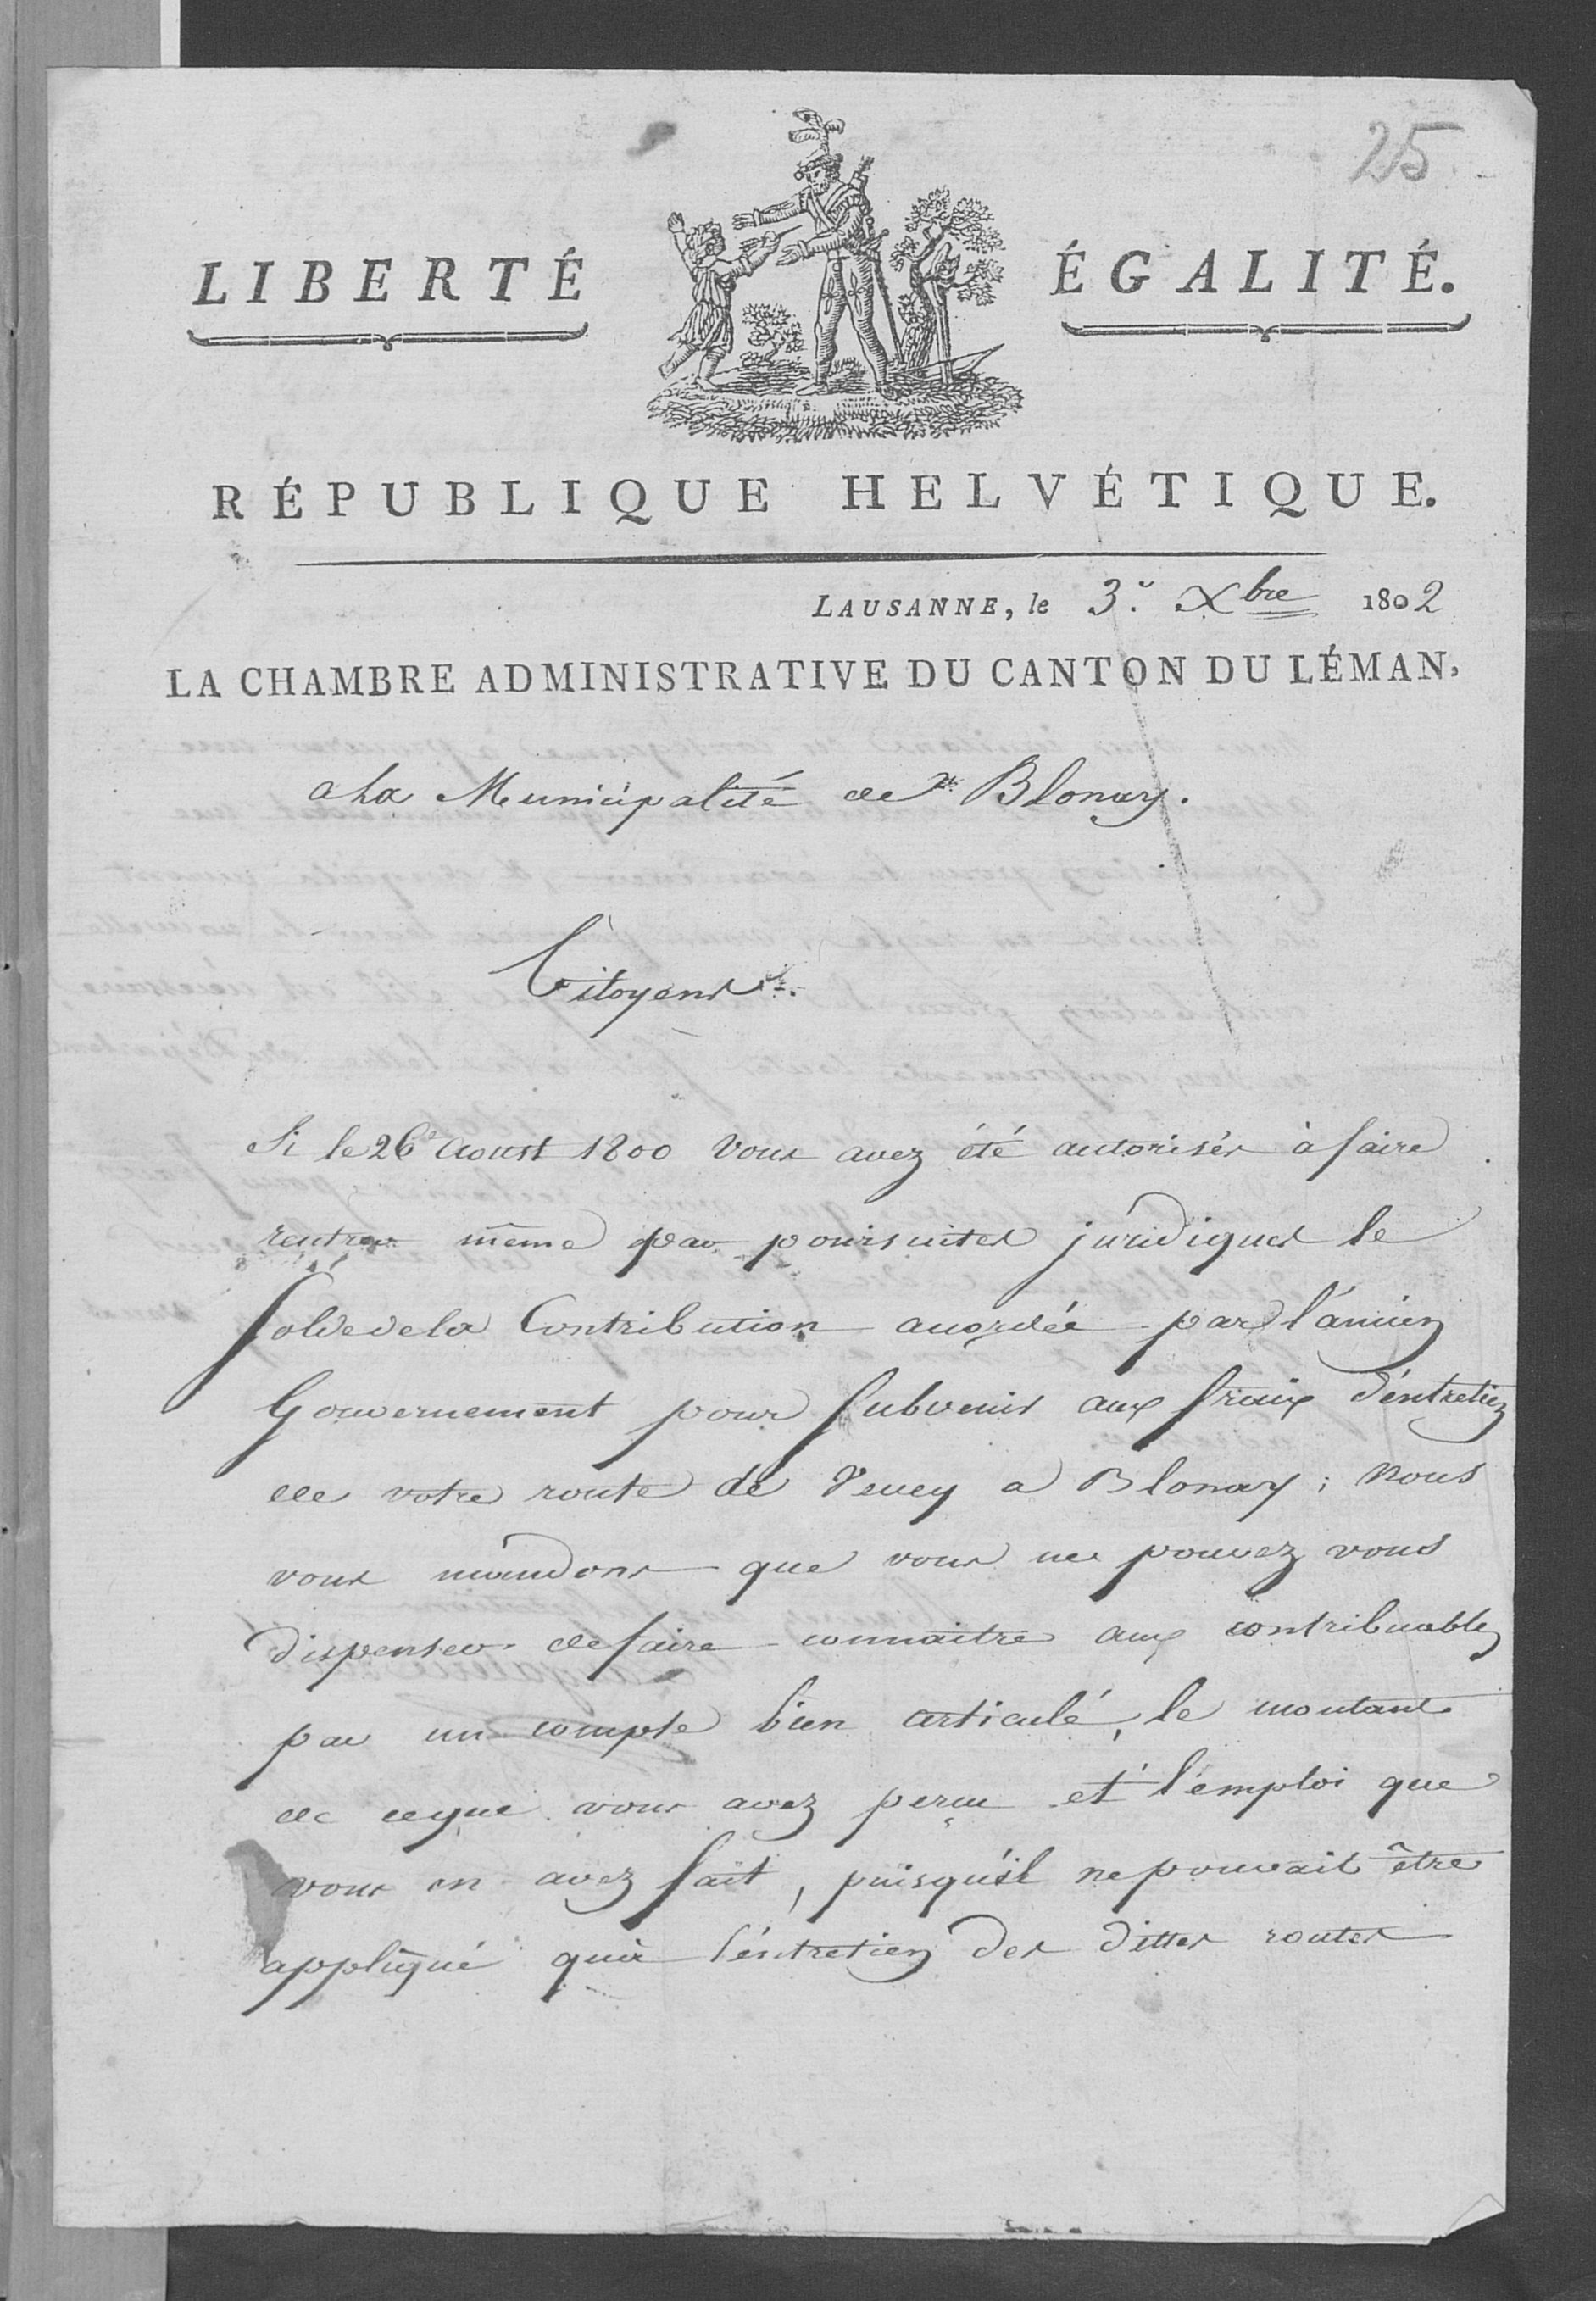 25
LIBERTÉ ÉGALITÉ.
RÉPUBLIQUE HELVÉTIQUE.
LAUSANNE, le 3.e Xbre 1802
LA CHAMBRE ADMINISTRATIVE DU CANTON DU LÉMAN,
a La Municipalité de Blonay.
Citoyens.
Si le 26e Aoust 1800 vous avez été autorisés à faire
rentrer même par poursuites juridiques le
Solde de la Contribution accordée par l'ancien
Gouvernement pour subvenir aux fraix d'éntretien
de votre route de Vevey a Blonay; nous
vous mandons que vous ne pouvez vous
dispenser de faire connaitre aux contribuables
par un compte bien articulé, le montant
de ceque vous avez perçu et l'emploi que
vous en avez fait, puisqu'il ne pouvait être
appliqué qu'à l'éntretien des dittes routes